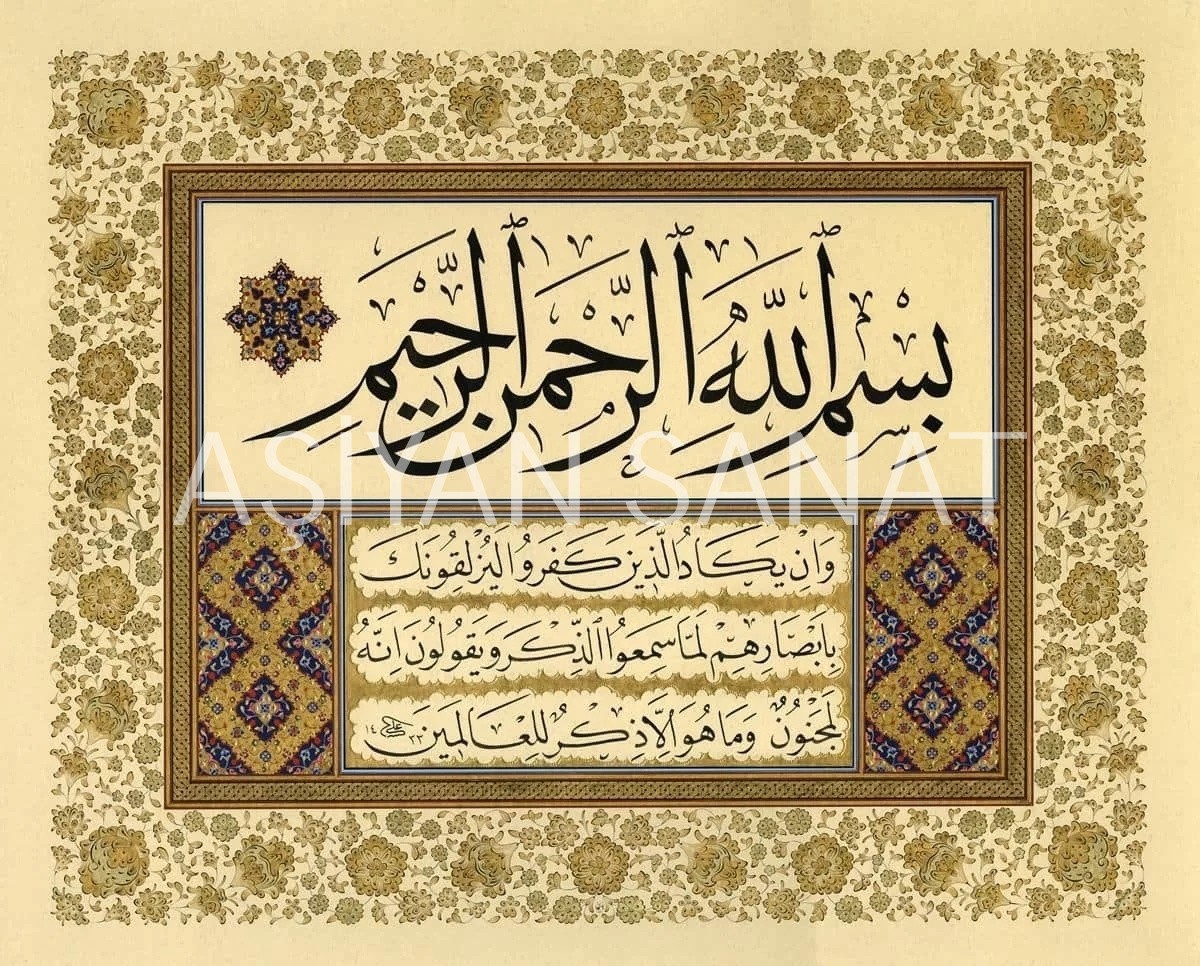 بِسْمِ اللّٰهِ الرَّحْمٰنِ الرَّحِيمِ
AŞİYAN SANAT
وَاِنْ يَكَادُ الَّذِينَ كَفَرُوا لَيُزْلِقُونَكَ
بِاَبْصَارِهِمْ لَمَّا سَمِعُوا الذِّكْرَ وَيَقُولُونَ اِنَّهُ
لَمَجْنُونٌ وَمَا هُوَ اِلَّا ذِكْرٌ لِلْعَالَمِينَ